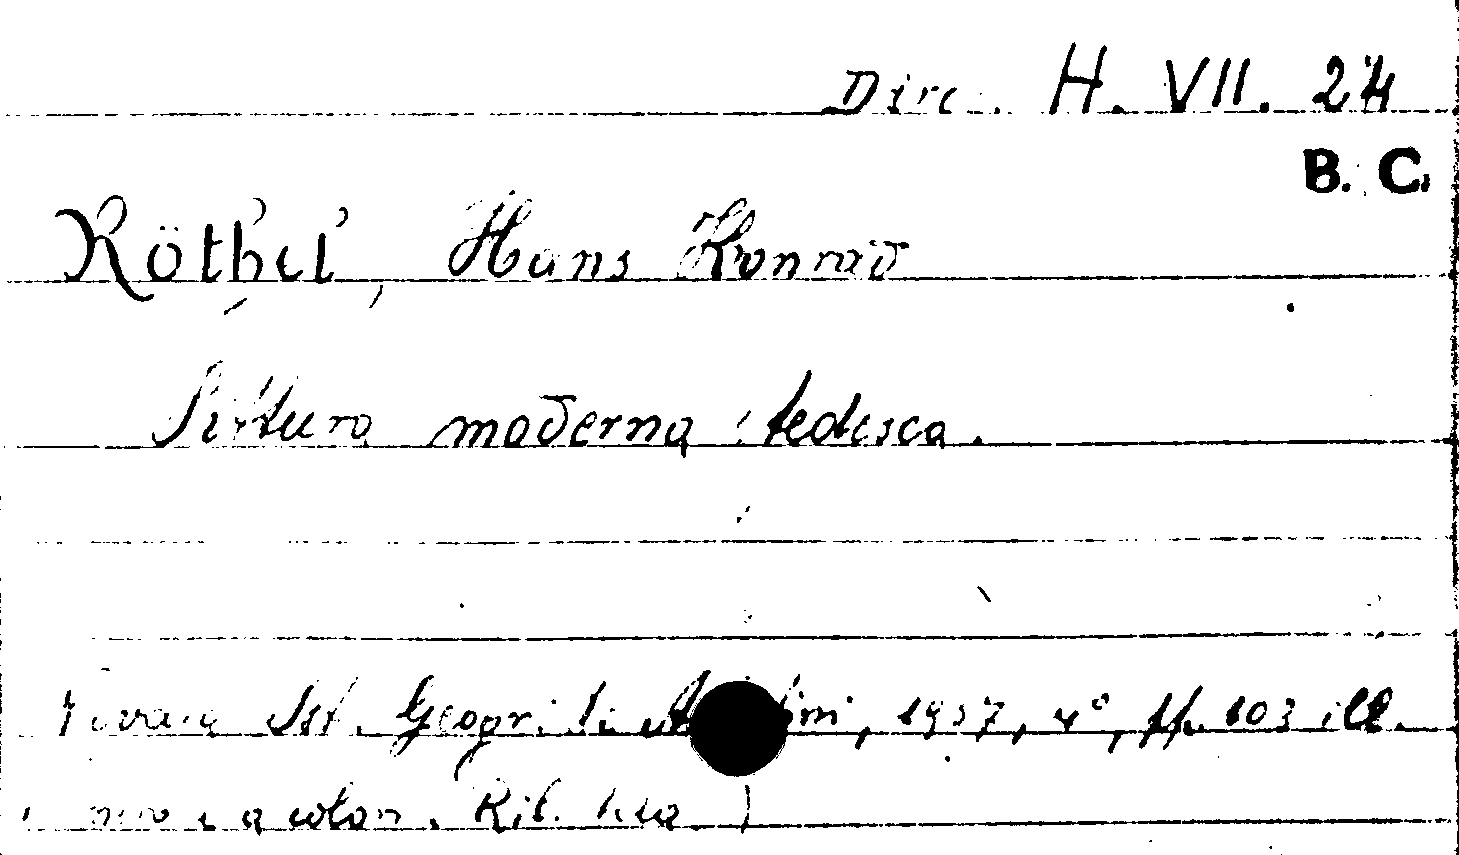 Direz. H. VII. 24
B. C.
Röthel, Hans Konrad
Pittura moderna tedesca.
Novara Ist. Geogr. De Agostini, 1957, 4°, pp. 103 ill.
nero e a color. Ril. tela